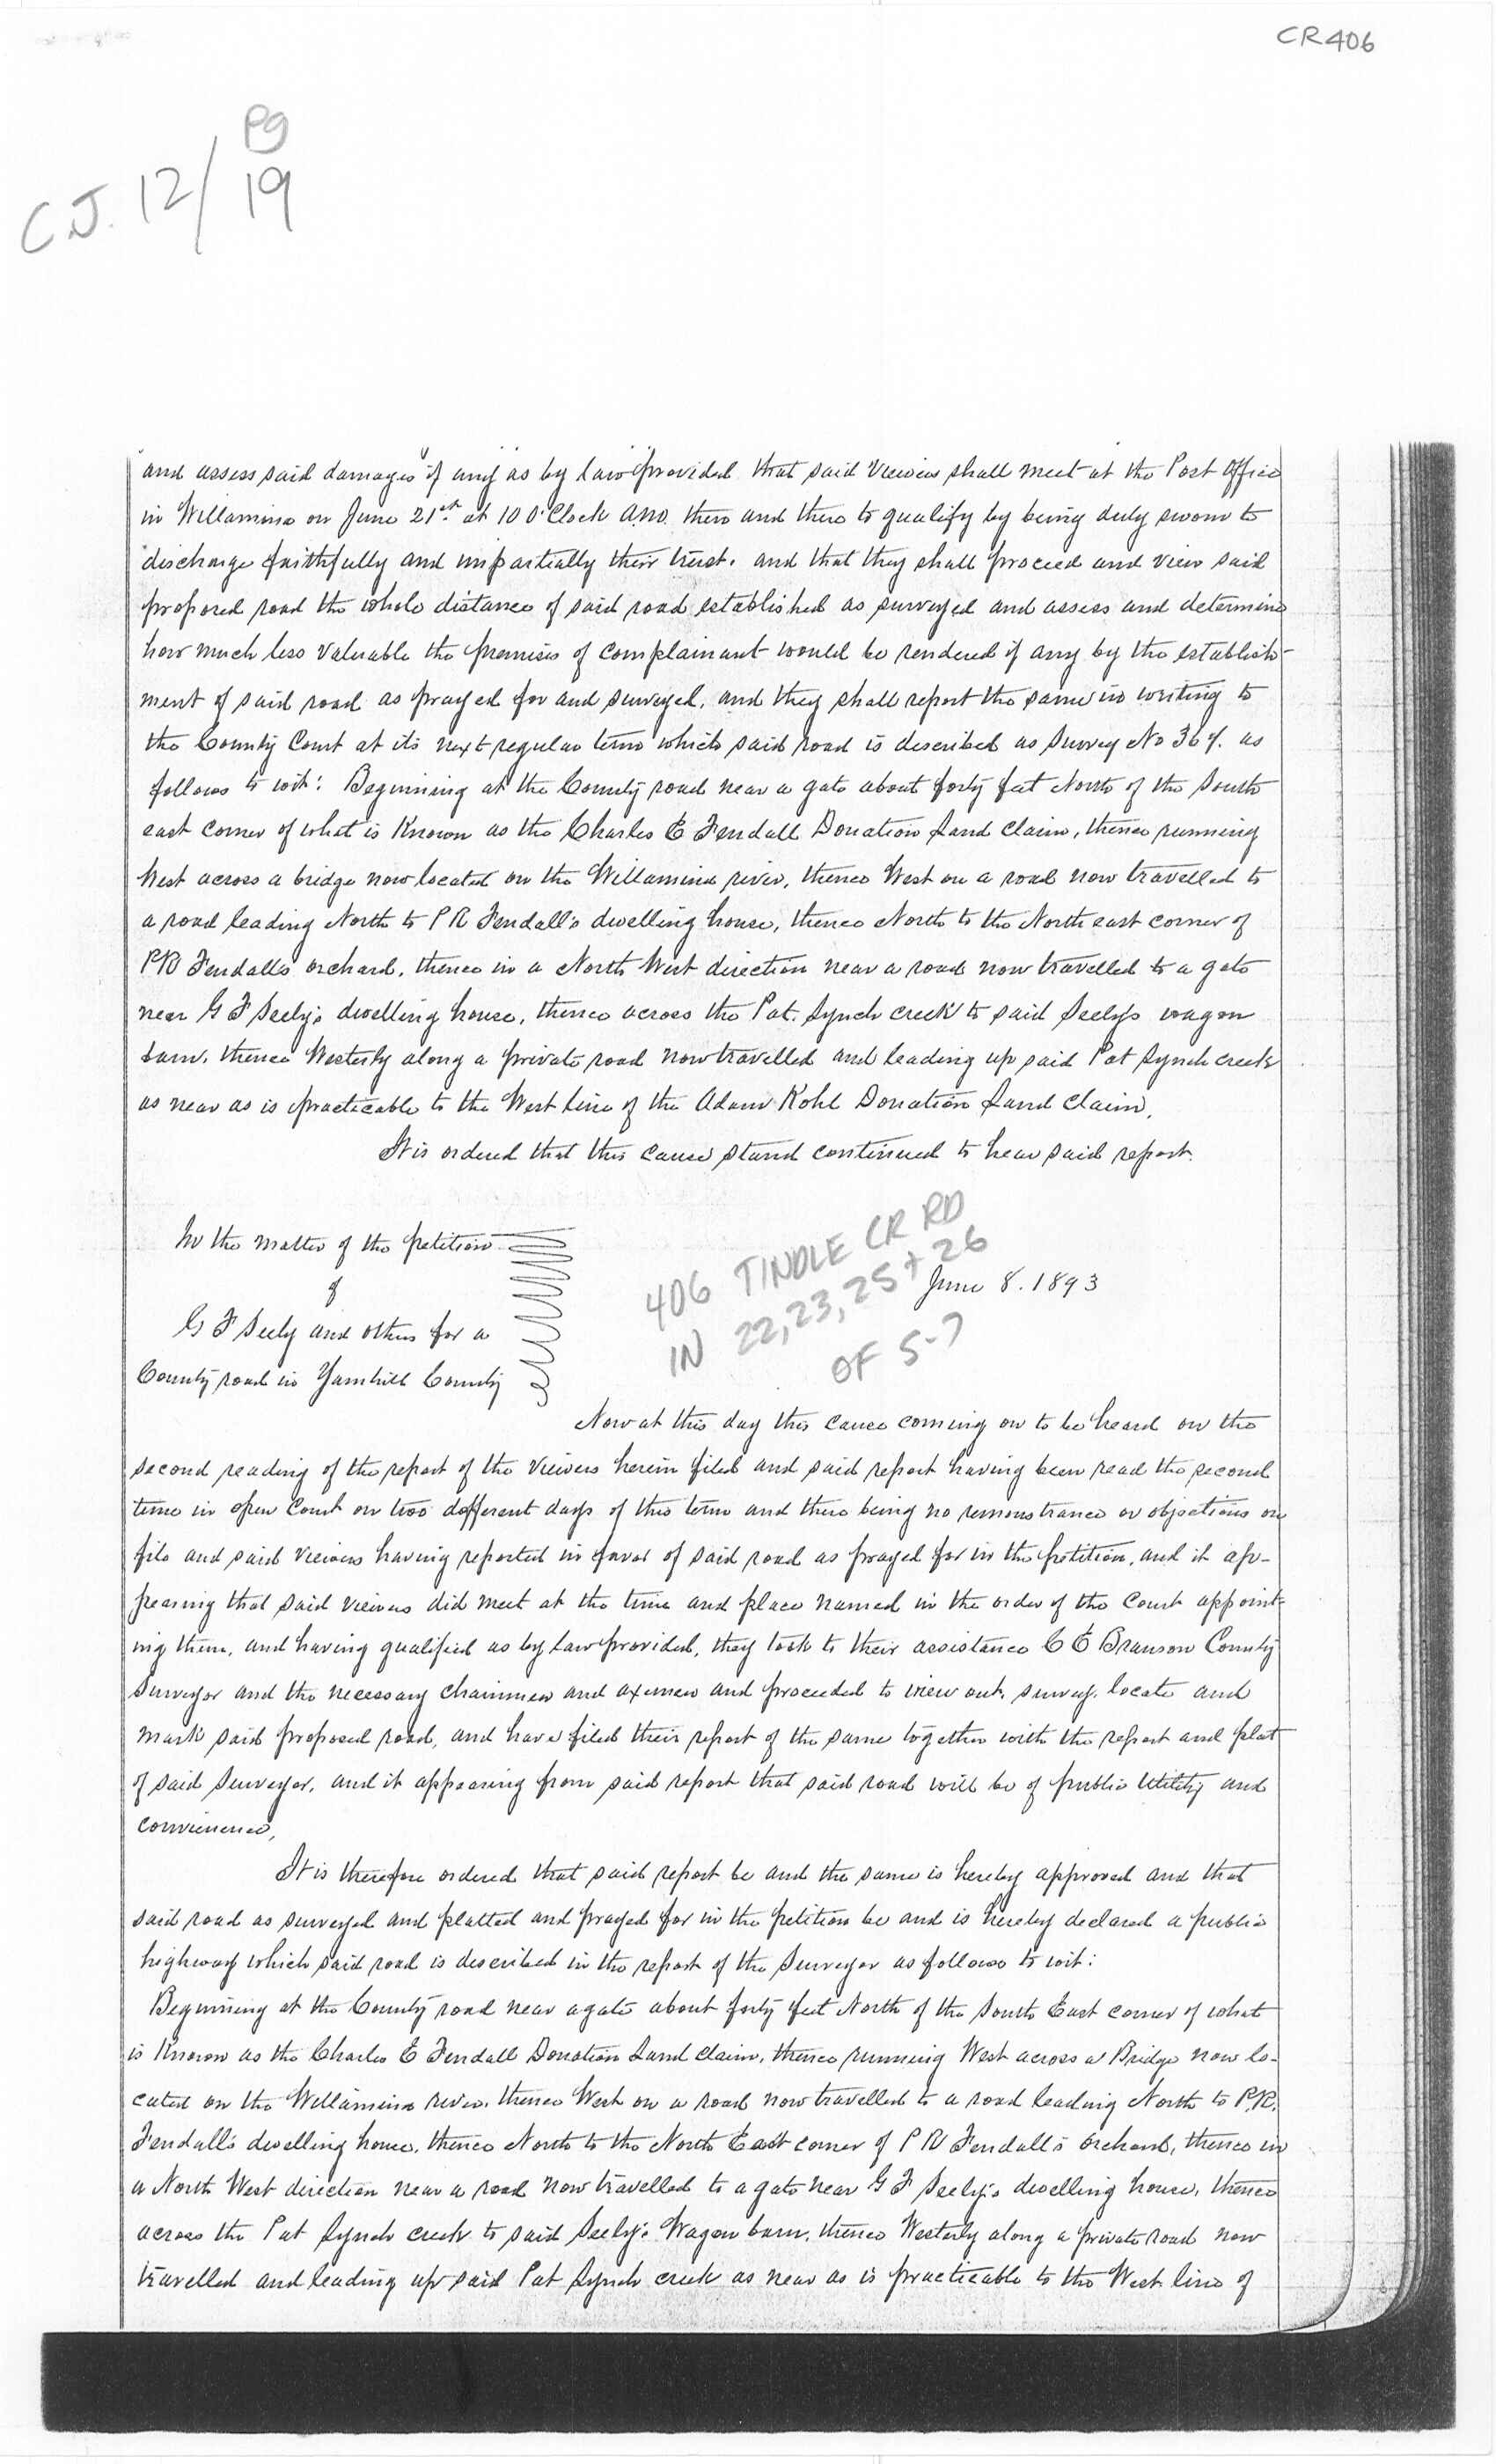 CR406
Pg
C.J. 12/19
and assess said damages if any as by law provided that said Viewers shall meet at the Post Office
in Willamina on June 21st at 10 O'Clock A.M. then and there to qualify by being duly sworn to
discharge faithfully and impartially their trust. and that they shall proceed and view said
proposed road the whole distance of said road established as surveyed and assess and determine
how much less valuable the premises of complainant would be rendered if any by the establish-
ment of said road as prayed for and surveyed, and they shall report the same in writing to
the County Court at its next regular term which said road is described as Survey No 367. as
follows to wit: Beginning at the County road near a gate about forty feet North of the South
east corner of what is Known as the Charles E Fendall Donation Land Claim, thence running
West across a bridge now located on the Willamina river, thence West on a road now travelled to
a road leading North to P R Fendall's dwelling house, thence North to the North east corner of
P R Fendalls orchard, thence in a North West direction near a road now travelled to a gate
near G F Seely's dwelling house, thence across the Pat. Lynch creek to said Seely's wagon
barn, thence Westerly along a private road now travelled and leading up said Pat Lynch creek
as near as is practicable to the West line of the Adam Kohl Donation Land Claim.
It is ordered that this cause stand continued to hear said report.
In the matter of the petition
of
G F Seely and others for a
County road in Yamhill County
406 TINDLE CR RD
IN 22, 23, 25 + 26
OF 5-7
June 8. 1893
Now at this day this cause coming on to be heard on the
second reading of the report of the Viewers herein filed and said report having been read the second
time in open Court on two different days of this term and there being no remonstrance or objections on
file and said viewers having reported in favor of said road as prayed for in the petition, and it ap-
pearing that said viewers did meet at the time and place named in the order of the Court appoint-
ing them, and having qualified as by law provided, they took to their assistance C E Branson County
Surveyor and the necessary chainmen and axemen and proceeded to view out, survey, locate and
mark said proposed road, and have filed their report of the same together with the report and plat
of said Surveyor, and it appearing from said report that said road will be of public utility and
convenience,
It is therefore ordered that said report be and the same is hereby approved and that
said road as surveyed and platted and prayed for in the petition be and is hereby declared a public
highway which said road is described in the report of the Surveyor as follows to wit:
Beginning at the County road near a gate about forty feet North of the South East corner of what
is Known as the Charles E Fendall Donation Land Claim, thence running West across a Bridge now lo-
cated on the Willamina river, thence West on a road now travelled to a road leading North to P.R.
Fendall's dwelling house, thence North to the North East corner of P R Fendall's orchard, thence in
a North West direction near a road now travelled to a gate near G F Seely's dwelling house, thence
across the Pat Lynch creek to said Seely's Wagon barn, thence Westerly along a private road now
travelled and leading up said Pat Lynch creek as near as is practicable to the West line of